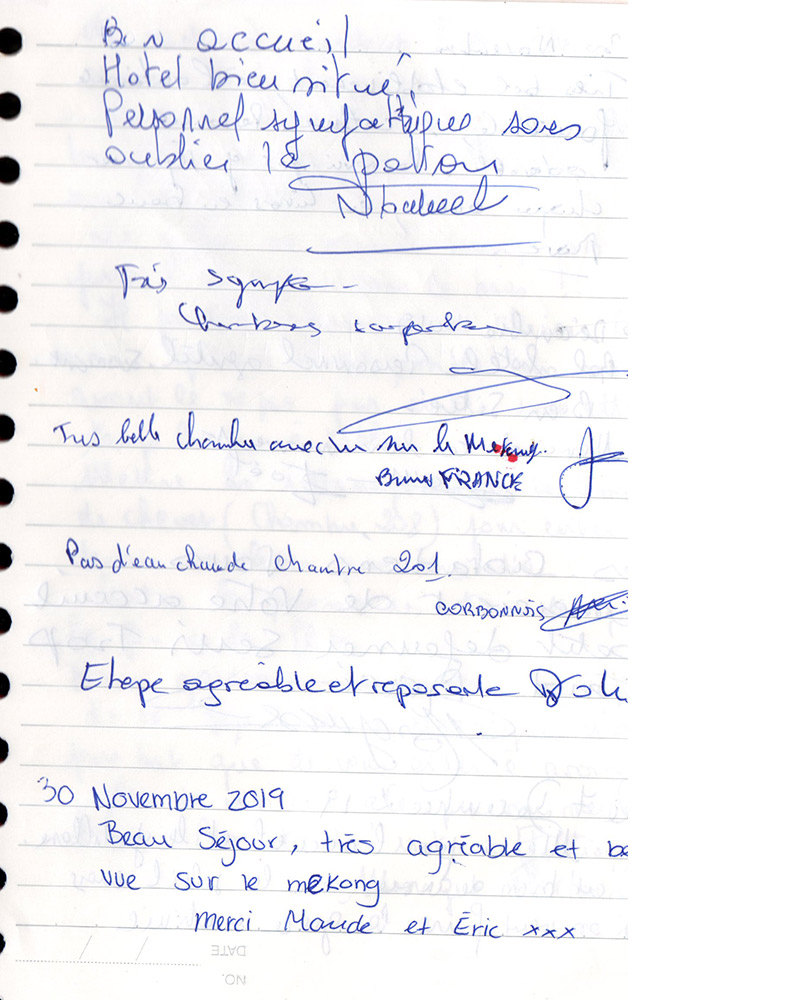 Bon accueil
Hotel bien situé,
Personnel sympathiques sans
oublier le patron
Très sympa
Chambres
Très belle chambre avec vu sur le Mekong.
Bruno FRANCK
Pas d'eau chaude chambre 201.
CORBONNOIS
Etape agréable et reposante
30 Novembre 2019
Beau Séjour, très agréable et be
vue sur le mekong
Merci Maude et Eric xxx
DATE
NO.